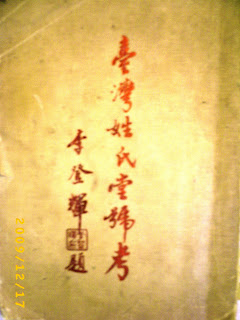 臺灣姓氏堂號考
李登輝題
2009/12/17